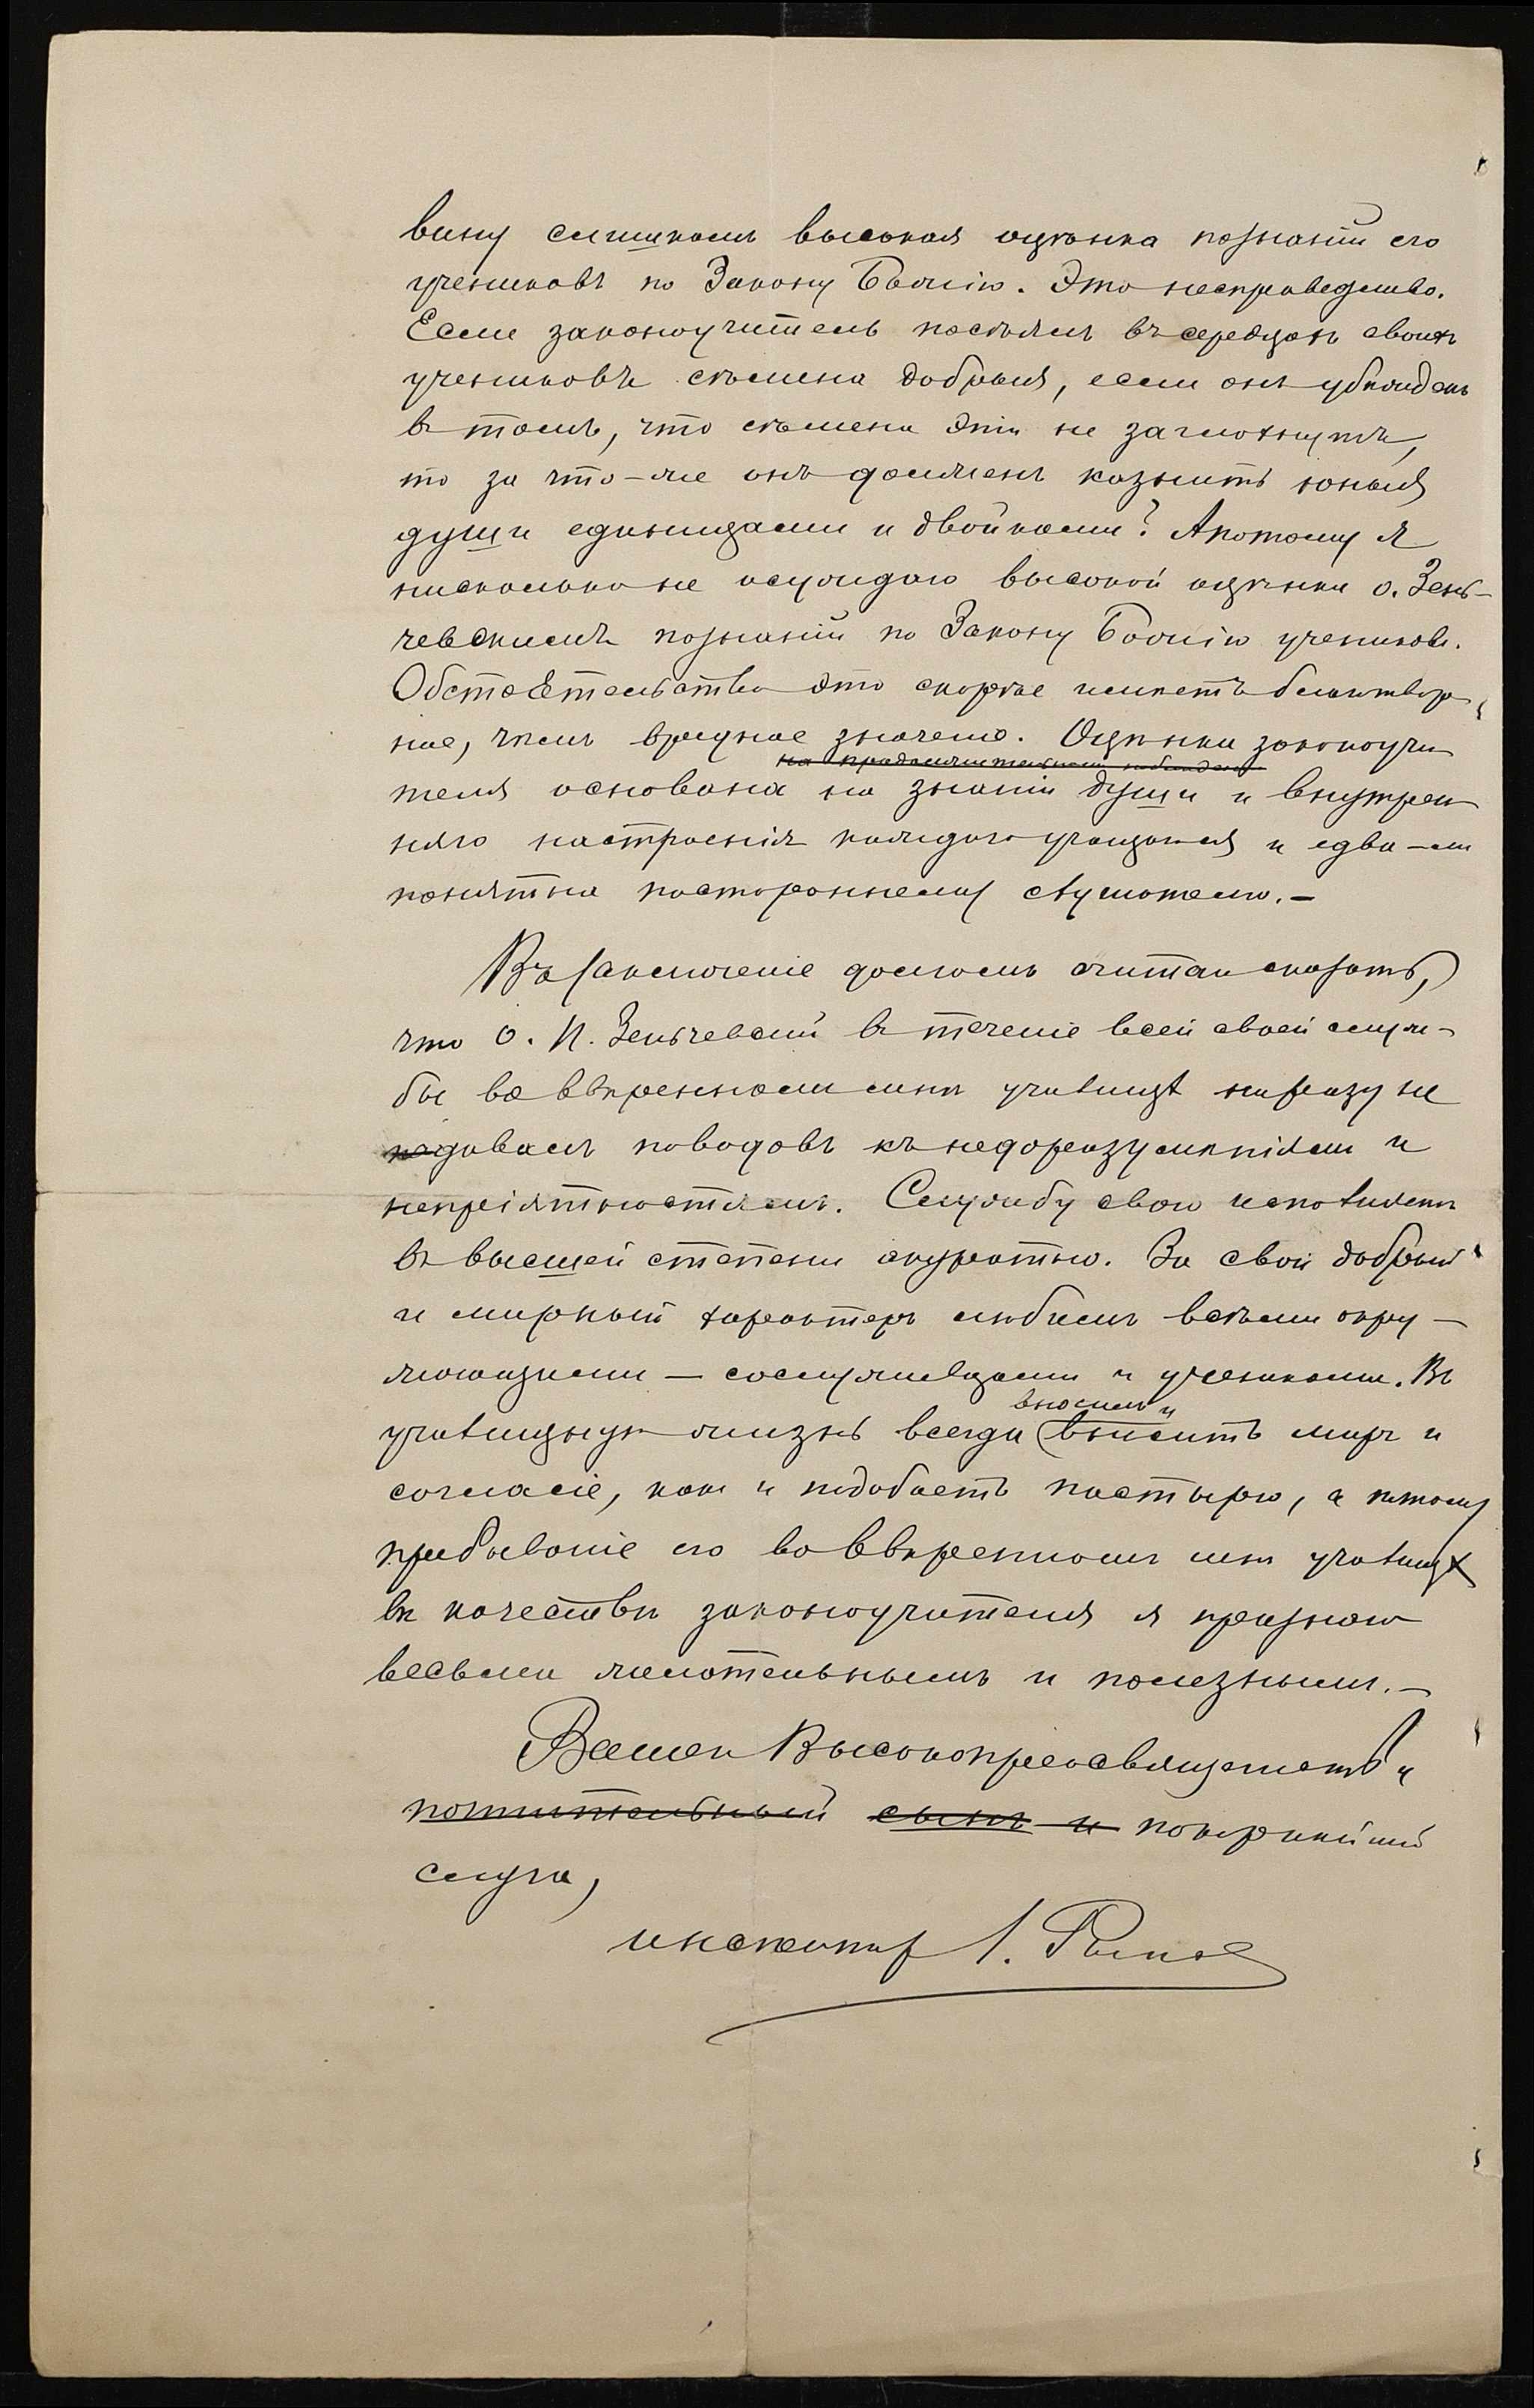 вину слишкомъ высокая оцѣнка познаній его
учениковъ по Закону Божію. Это несправедливо.
Если законоучитель посѣялъ въ сердцахъ своихъ
учениковъ сѣмена добрыя, если онъ убѣжденъ
въ томъ, что сѣмена эти не заглохнутъ,
то за что-же онъ долженъ казнить юныя
души единицами и двойками? А потому я
нисколько не осуждаю высокой оцѣнки о. Зень-
чевскимъ познаній по Закону Божію учениковъ.
Обстоятельство это скорѣе имѣетъ благотвор-
ное, чѣмъ вредное значеніе. Оцѣнка законоучи-
на продолжительномъ наблюденіи
теля основана на знаніи души и внутрен-
няго настроенія каждаго учащагося и едва-ли
понятна постороннему слушателю.-
Въ заключеніе долгомъ считаю сказать,
что о. И. Зеньчевскій въ теченіе всей своей служ-
бы во ввѣренномъ мнѣ училищѣ ни разу не
подавалъ поводовъ къ недоразумѣніямъ и
непріятностямъ. Службу свою исполняетъ
въ высшей степени акуратно. За свой добрый
и мирный характеръ любимъ всѣми окру-
жающими — сослуживцами и учениками. Въ
вносилъ и
училищную жизнь всегда вноситъ миръ и
согласіе, какъ и подобаетъ пастырю, а потому
пребываніе его во ввѣренномъ мнѣ училищѣ
въ качествѣ законоучителя я признаю
весьма желательнымъ и полезнымъ.-
Вашего Высокопреосвященства
почтительный сынъ и покорнѣйшій
слуга,
инспекторъ